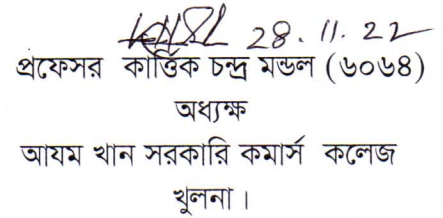 28.11.22
প্রফেসর কার্ত্তিক চন্দ্র মন্ডল (৬০৬৪)
অধ্যক্ষ
আযম খান সরকারি কমার্স কলেজ
খুলনা।